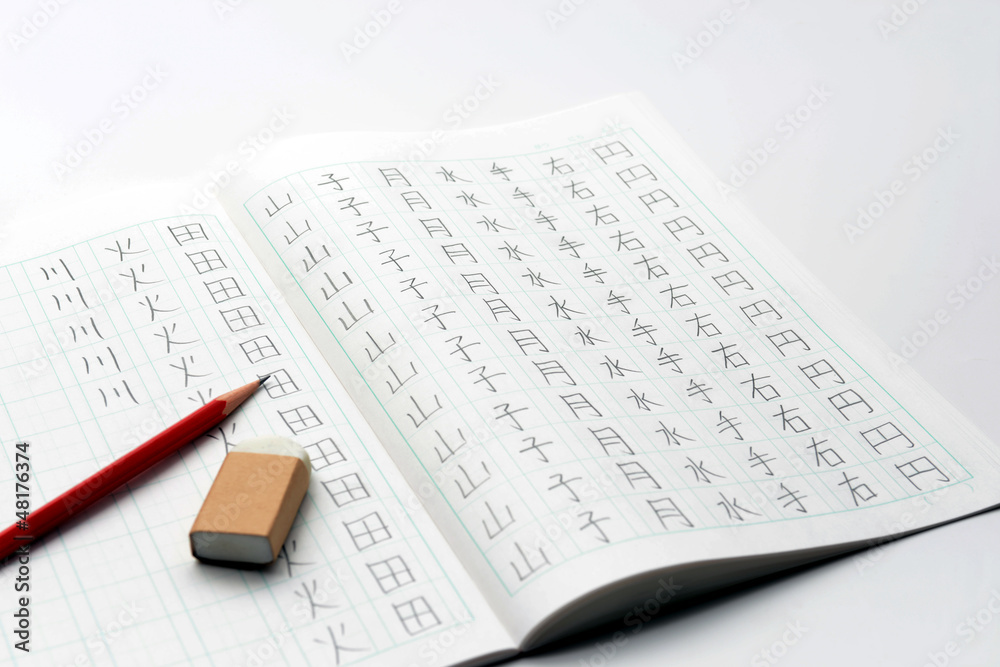 円円円円円円円円円円円円
右右右右右右右右右右右右
手手手手手手手手手手手手
水水水水水水水水水水水水
月月月月月月月月月月月月
子子子子子子子子子子子子
山山山山山山山山山山山山
田田田田田田田田田田田田
火火火火火火火火火
川川川川川
Adobe Stock | #48176374